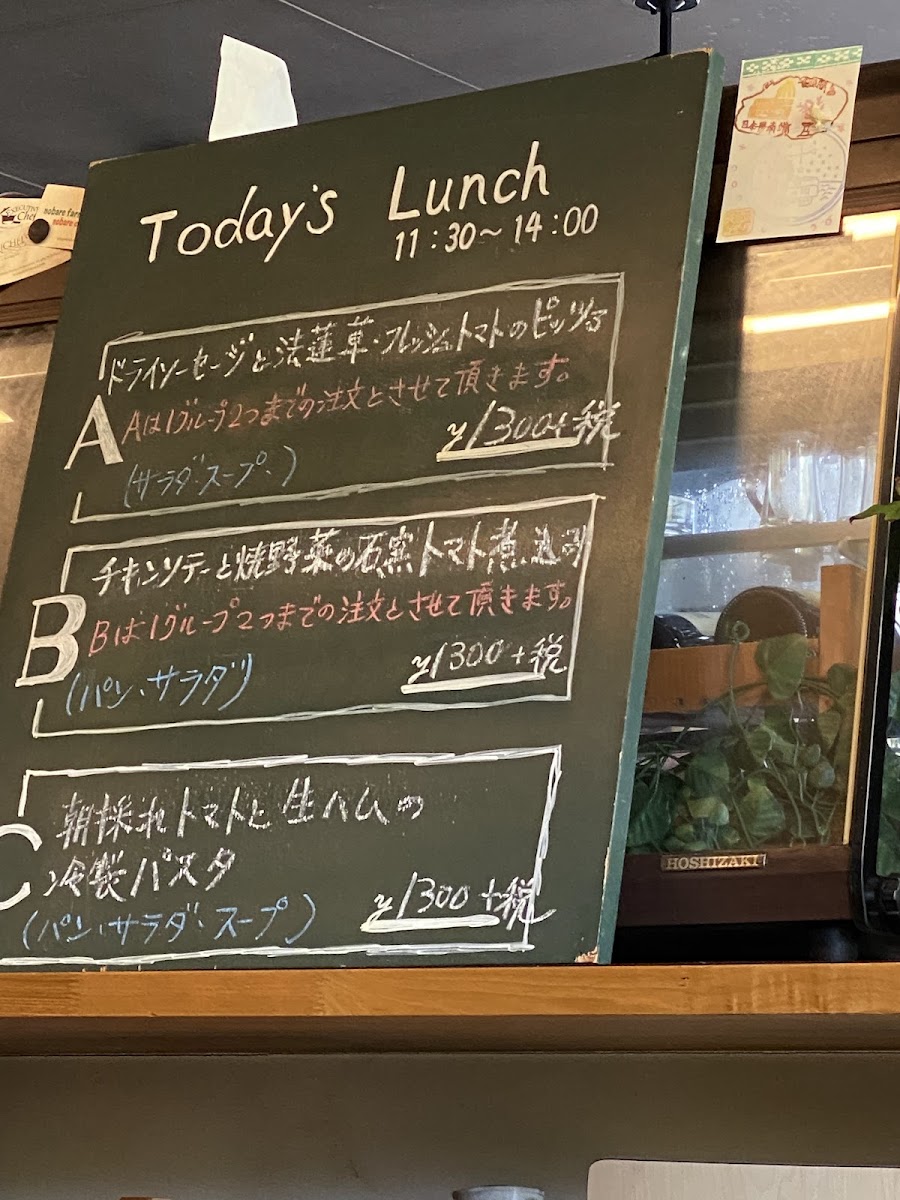 Today's Lunch
11:30〜14:00
ドライソーセージと法蓮草・フレッシュトマトのピッツァ
A
Aは1グループ2つまでの注文とさせて頂きます。
¥1300+税
(サラダ・スープ・)
チキンソテーと焼野菜の石窯トマト煮込み
B
Bは1グループ2つまでの注文とさせて頂きます。
¥1300+税
(パン・サラダ)
朝採れトマトと生ハムの
C
冷製パスタ
¥1300+税
(パン・サラダ・スープ)
HOSHIZAKI
nobare
nobare